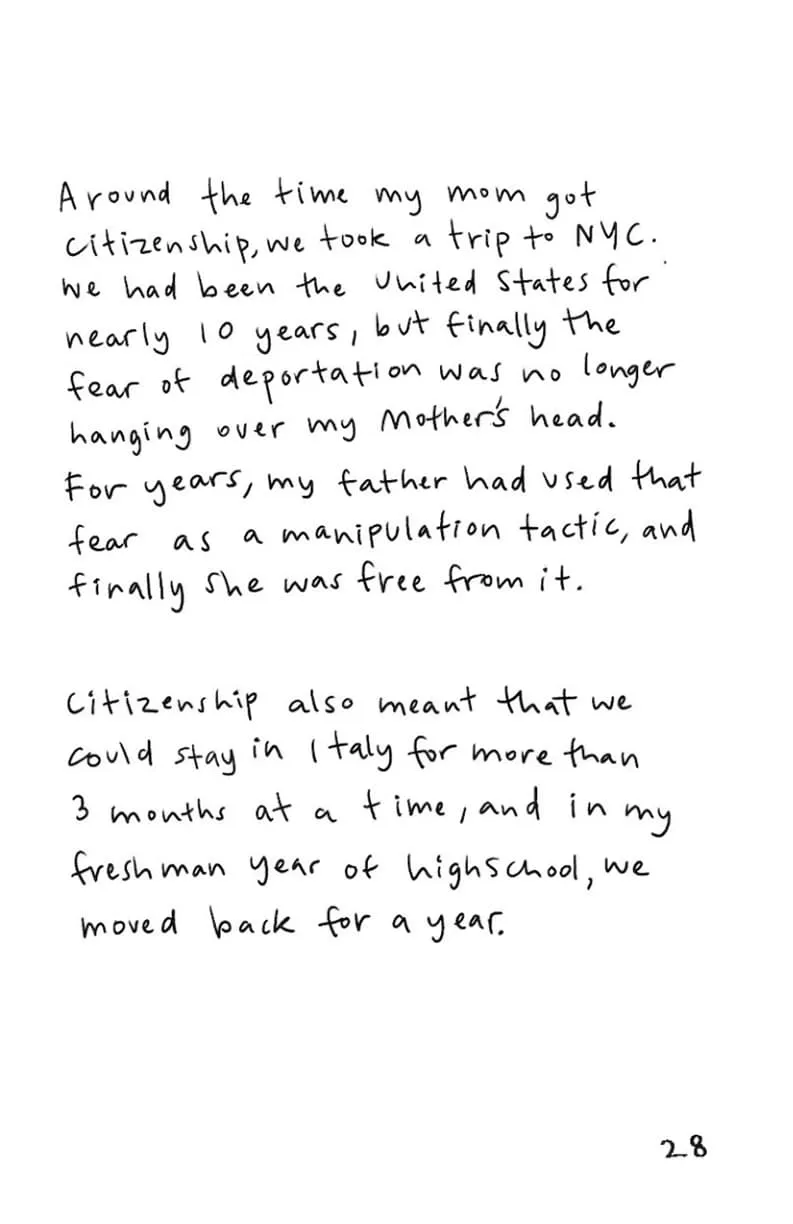 Around the time my mom got
citizenship, we took a trip to NYC.
We had been the United States for
nearly 10 years, but finally the
fear of deportation was no longer
hanging over my Mother's head.
For years, my father had used that
fear as a manipulation tactic, and
finally she was free from it.
Citizenship also meant that we
could stay in Italy for more than
3 months at a time, and in my
freshman year of highschool, we
moved back for a year.
28